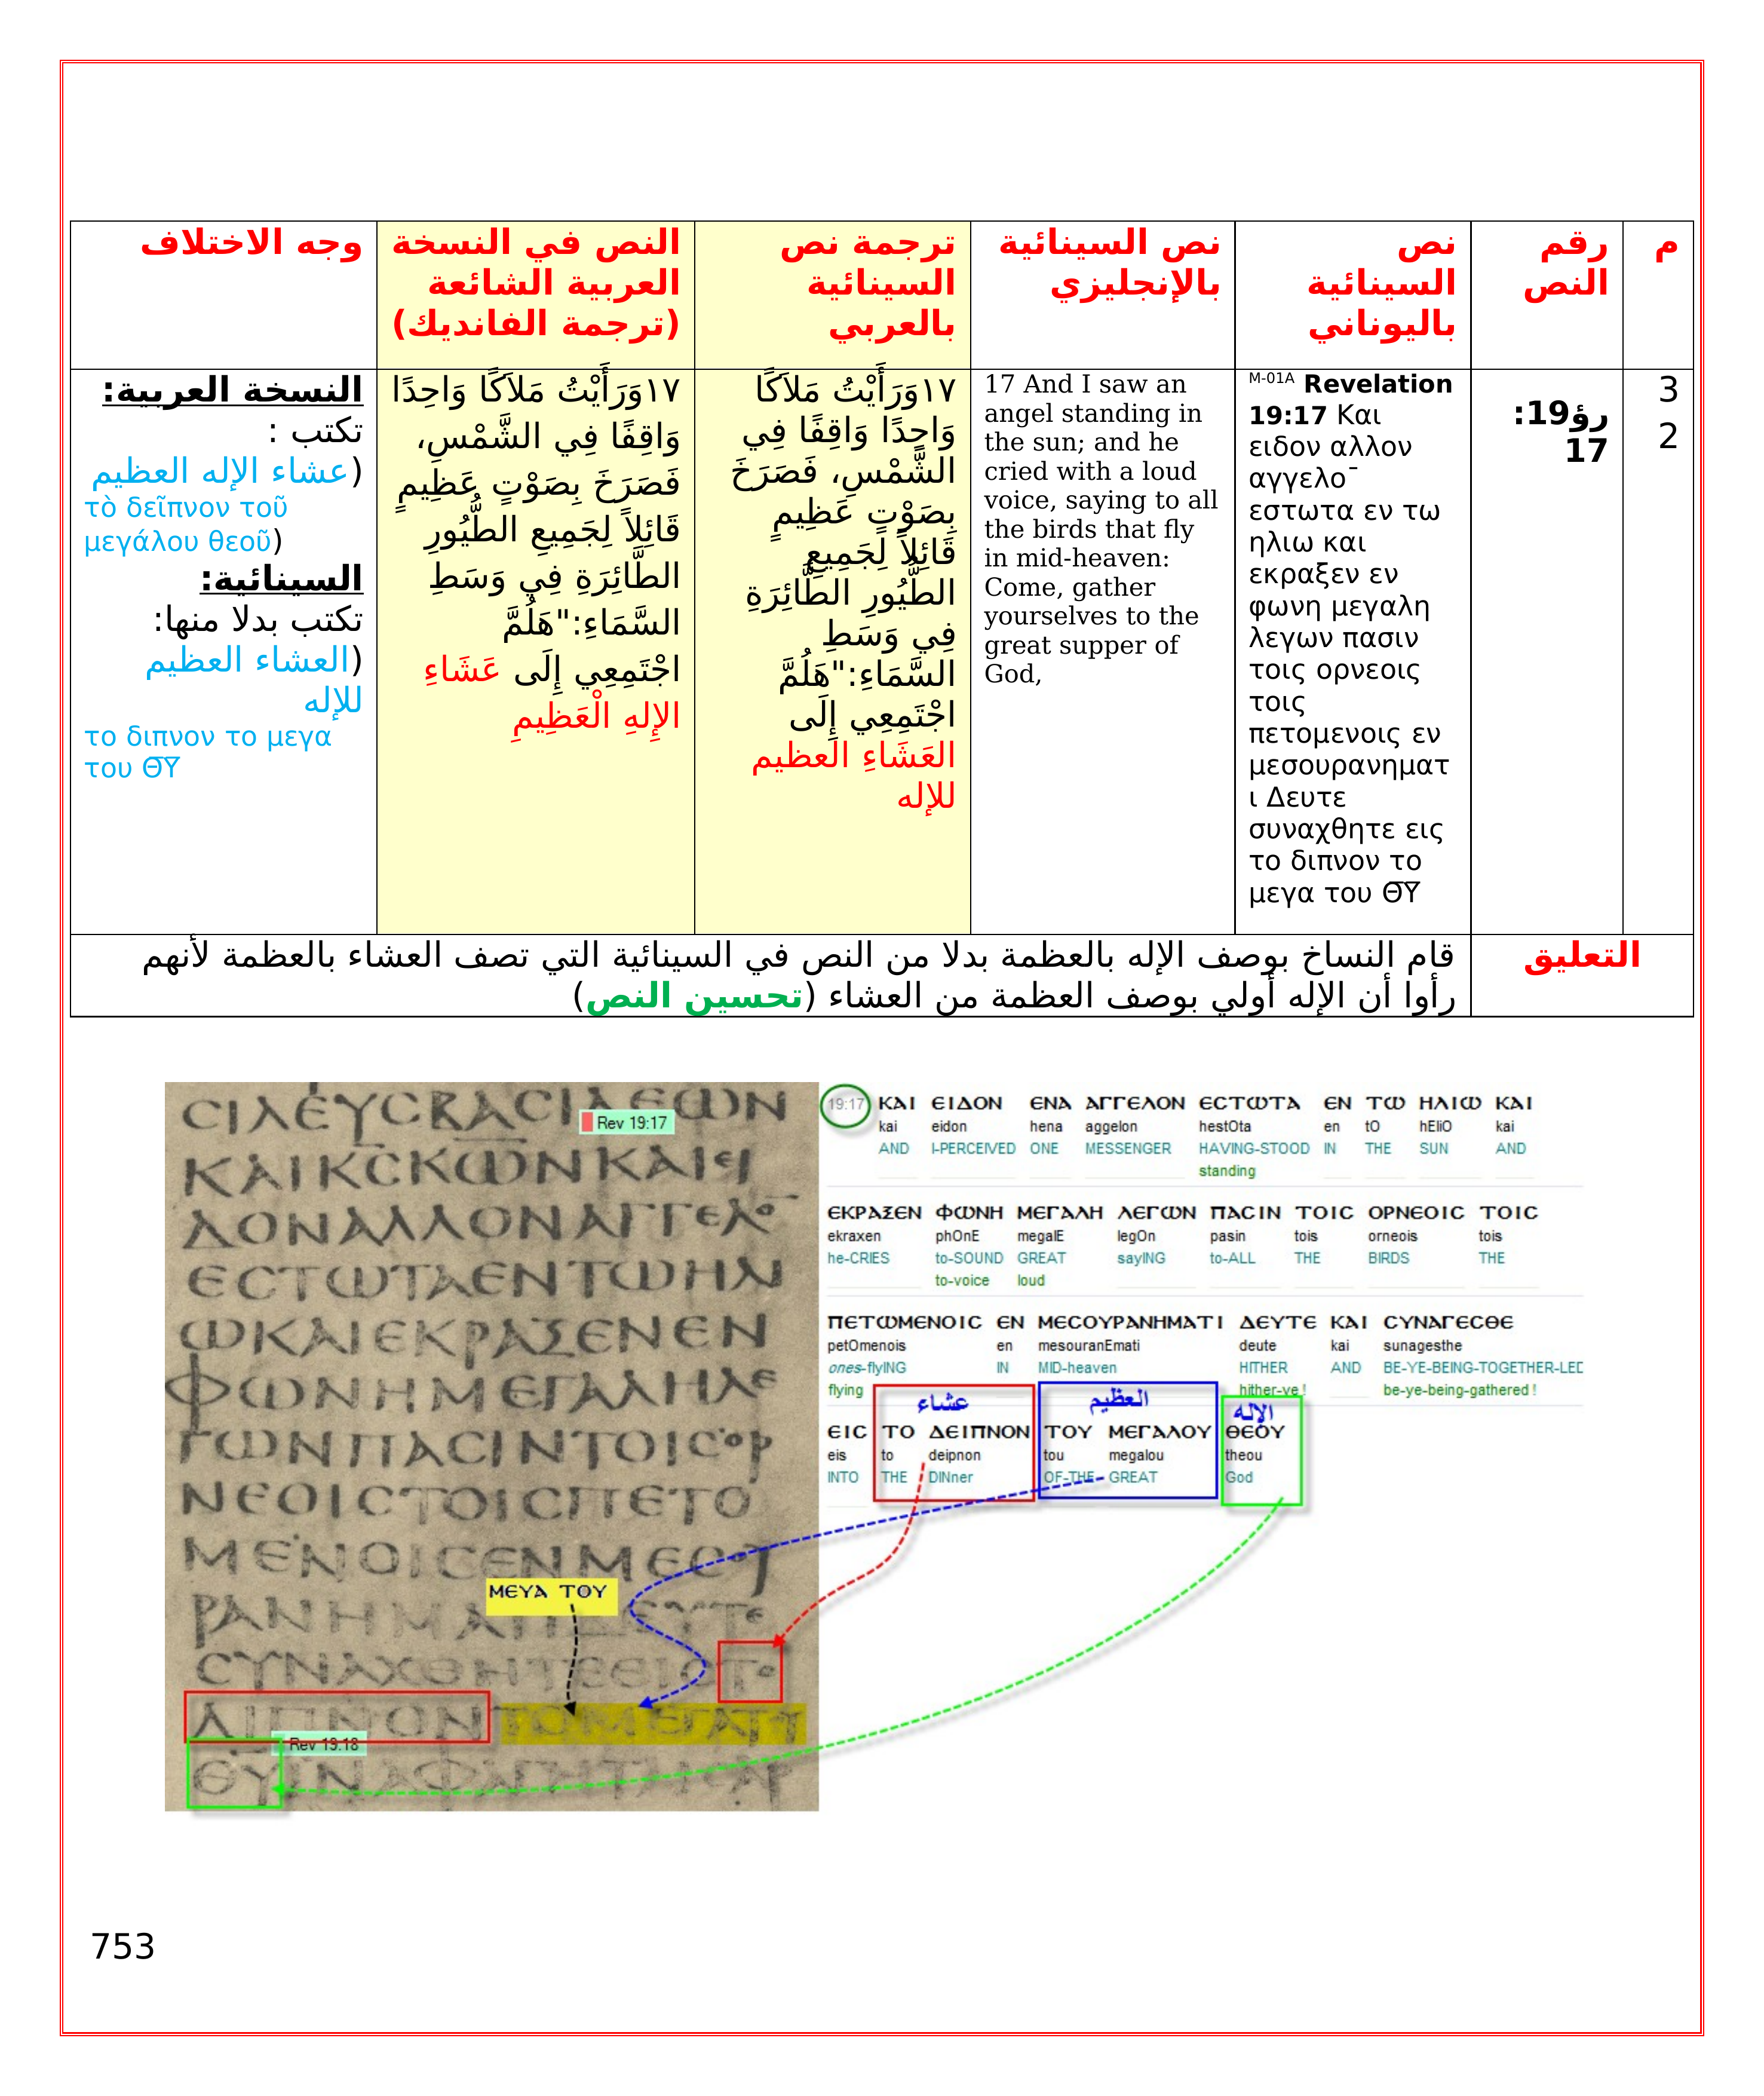 م
رقم
النص
نص
السينائية
باليوناني
نص السينائية
بالإنجليزي
ترجمة نص
السينائية
بالعربي
النص في النسخة
العربية الشائعة
(ترجمة الفانديك)
وجه الاختلاف
3
2
رؤ19:
17
M-01A Revelation
19:17 Και
ειδον αλλον
αγγελο¯
εστωτα εν τω
ηλιω και
εκραξεν εν
φωνη μεγαλη
λεγων πασιν
τοις ορνεοις
τοις
πετομενοις εν
μεσουρανηματ
ι Δευτε
συναχθητε εις
το διπνον το
μεγα του Θ̅Υ̅
17 And I saw an
angel standing in
the sun; and he
cried with a loud
voice, saying to all
the birds that fly
in mid-heaven:
Come, gather
yourselves to the
great supper of
God,
١٧وَرَأَيْتُ مَلاَكًا
وَاحِدًا وَاقِفًا فِي
الشَّمْسِ، فَصَرَخَ
بِصَوْتٍ عَظِيمٍ
قَائِلاً لِجَمِيعِ
الطُّيُورِ الطَّائِرَةِ
فِي وَسَطِ
السَّمَاءِ:"هَلُمَّ
اجْتَمِعِي إِلَى
العَشَاءِ العظيم
للإله
١٧وَرَأَيْتُ مَلاَكًا وَاحِدًا
وَاقِفًا فِي الشَّمْسِ،
فَصَرَخَ بِصَوْتٍ عَظِيمٍ
قَائِلاً لِجَمِيعِ الطُّيُورِ
الطَّائِرَةِ فِي وَسَطِ
السَّمَاءِ:"هَلُمَّ
اجْتَمِعِي إِلَى عَشَاءِ
الإِلهِ الْعَظِيمِ
النسخة العربية:
تكتب :
(عشاء الإله العظيم
τὸ δεῖπνον τοῦ
μεγάλου θεοῦ)
السينائية:
تكتب بدلا منها:
(العشاء العظيم
للإله
το διπνον το μεγα
του Θ̅Υ̅
التعليق
قام النساخ بوصف الإله بالعظمة بدلا من النص في السينائية التي تصف العشاء بالعظمة لأنهم
رأوا أن الإله أولي بوصف العظمة من العشاء (تحسين النص)
ϹΙΛΕΥϹΒΑϹΙΛΕΩΝ
Rev 19:17
ΚΑΙΚϹΚΩΝΚΑΙΕΙ
ΔΟΝΑΛΛΟΝΑΓΓΕΛΟ¯
ΕϹΤΩΤΑΕΝΤΩΗΛΙ
ΩΚΑΙΕΚΡΑΞΕΝΕΝ
ΦΩΝΗΜΕΓΑΛΗΛΕ
ΓΩΝΠΑϹΙΝΤΟΙϹΟΡ
ΝΕΟΙϹΤΟΙϹΠΕΤΟ
ΜΕΝΟΙϹΕΝΜΕϹΟΥ
ΜΕΥΑ ΤΟΥ
ΡΑΝΗΜΑΤΙΔΕΥΤΕ
ϹΥΝΑΧΘΗΤΕΕΙϹΤΟ
ΔΙΠΝΟΝΤΟΜΕΓΑΤΥ
Rev 19:18
ΘΥΙΝΑΦΑΓΗΤΕϹΑΡ
19:17 ΚΑΙ ΕΙΔΟΝ ΕΝΑ ΑΓΓΕΛΟΝ ΕϹΤΩΤΑ ΕΝ ΤΩ ΗΛΙΩ ΚΑΙ
kai eidon hena aggelon hestOta en tO hEliO kai
AND I-PERCEIVED ONE MESSENGER HAVING-STOOD IN THE SUN AND
standing
ΕΚΡΑΞΕΝ ΦΩΝΗ ΜΕΓΑΛΗ ΛΕΓΩΝ ΠΑϹΙΝ ΤΟΙϹ ΟΡΝΕΟΙϹ ΤΟΙϹ
ekraxen phOnE megalE legOn pasin tois orneois tois
he-CRIES to-SOUND GREAT sayING to-ALL THE BIRDS THE
to-voice loud
ΠΕΤΩΜΕΝΟΙϹ ΕΝ ΜΕϹΟΥΡΑΝΗΜΑΤΙ ΔΕΥΤΕ ΚΑΙ ϹΥΝΑΓΕϹΘΕ
petOmenois en mesouranEmati deute kai sunagesthe
ones-flyING IN MID-heaven HITHER AND BE-YE-BEING-TOGETHER-LED
flying hither-ye ! be-ye-being-gathered !
عشاء العظيم الإله
ΕΙϹ ΤΟ ΔΕΙΠΝΟΝ ΤΟΥ ΜΕΓΑΛΟΥ ΘΕΟΥ
eis to deipnon tou megalou theou
INTO THE DINner OF-THE GREAT God
753